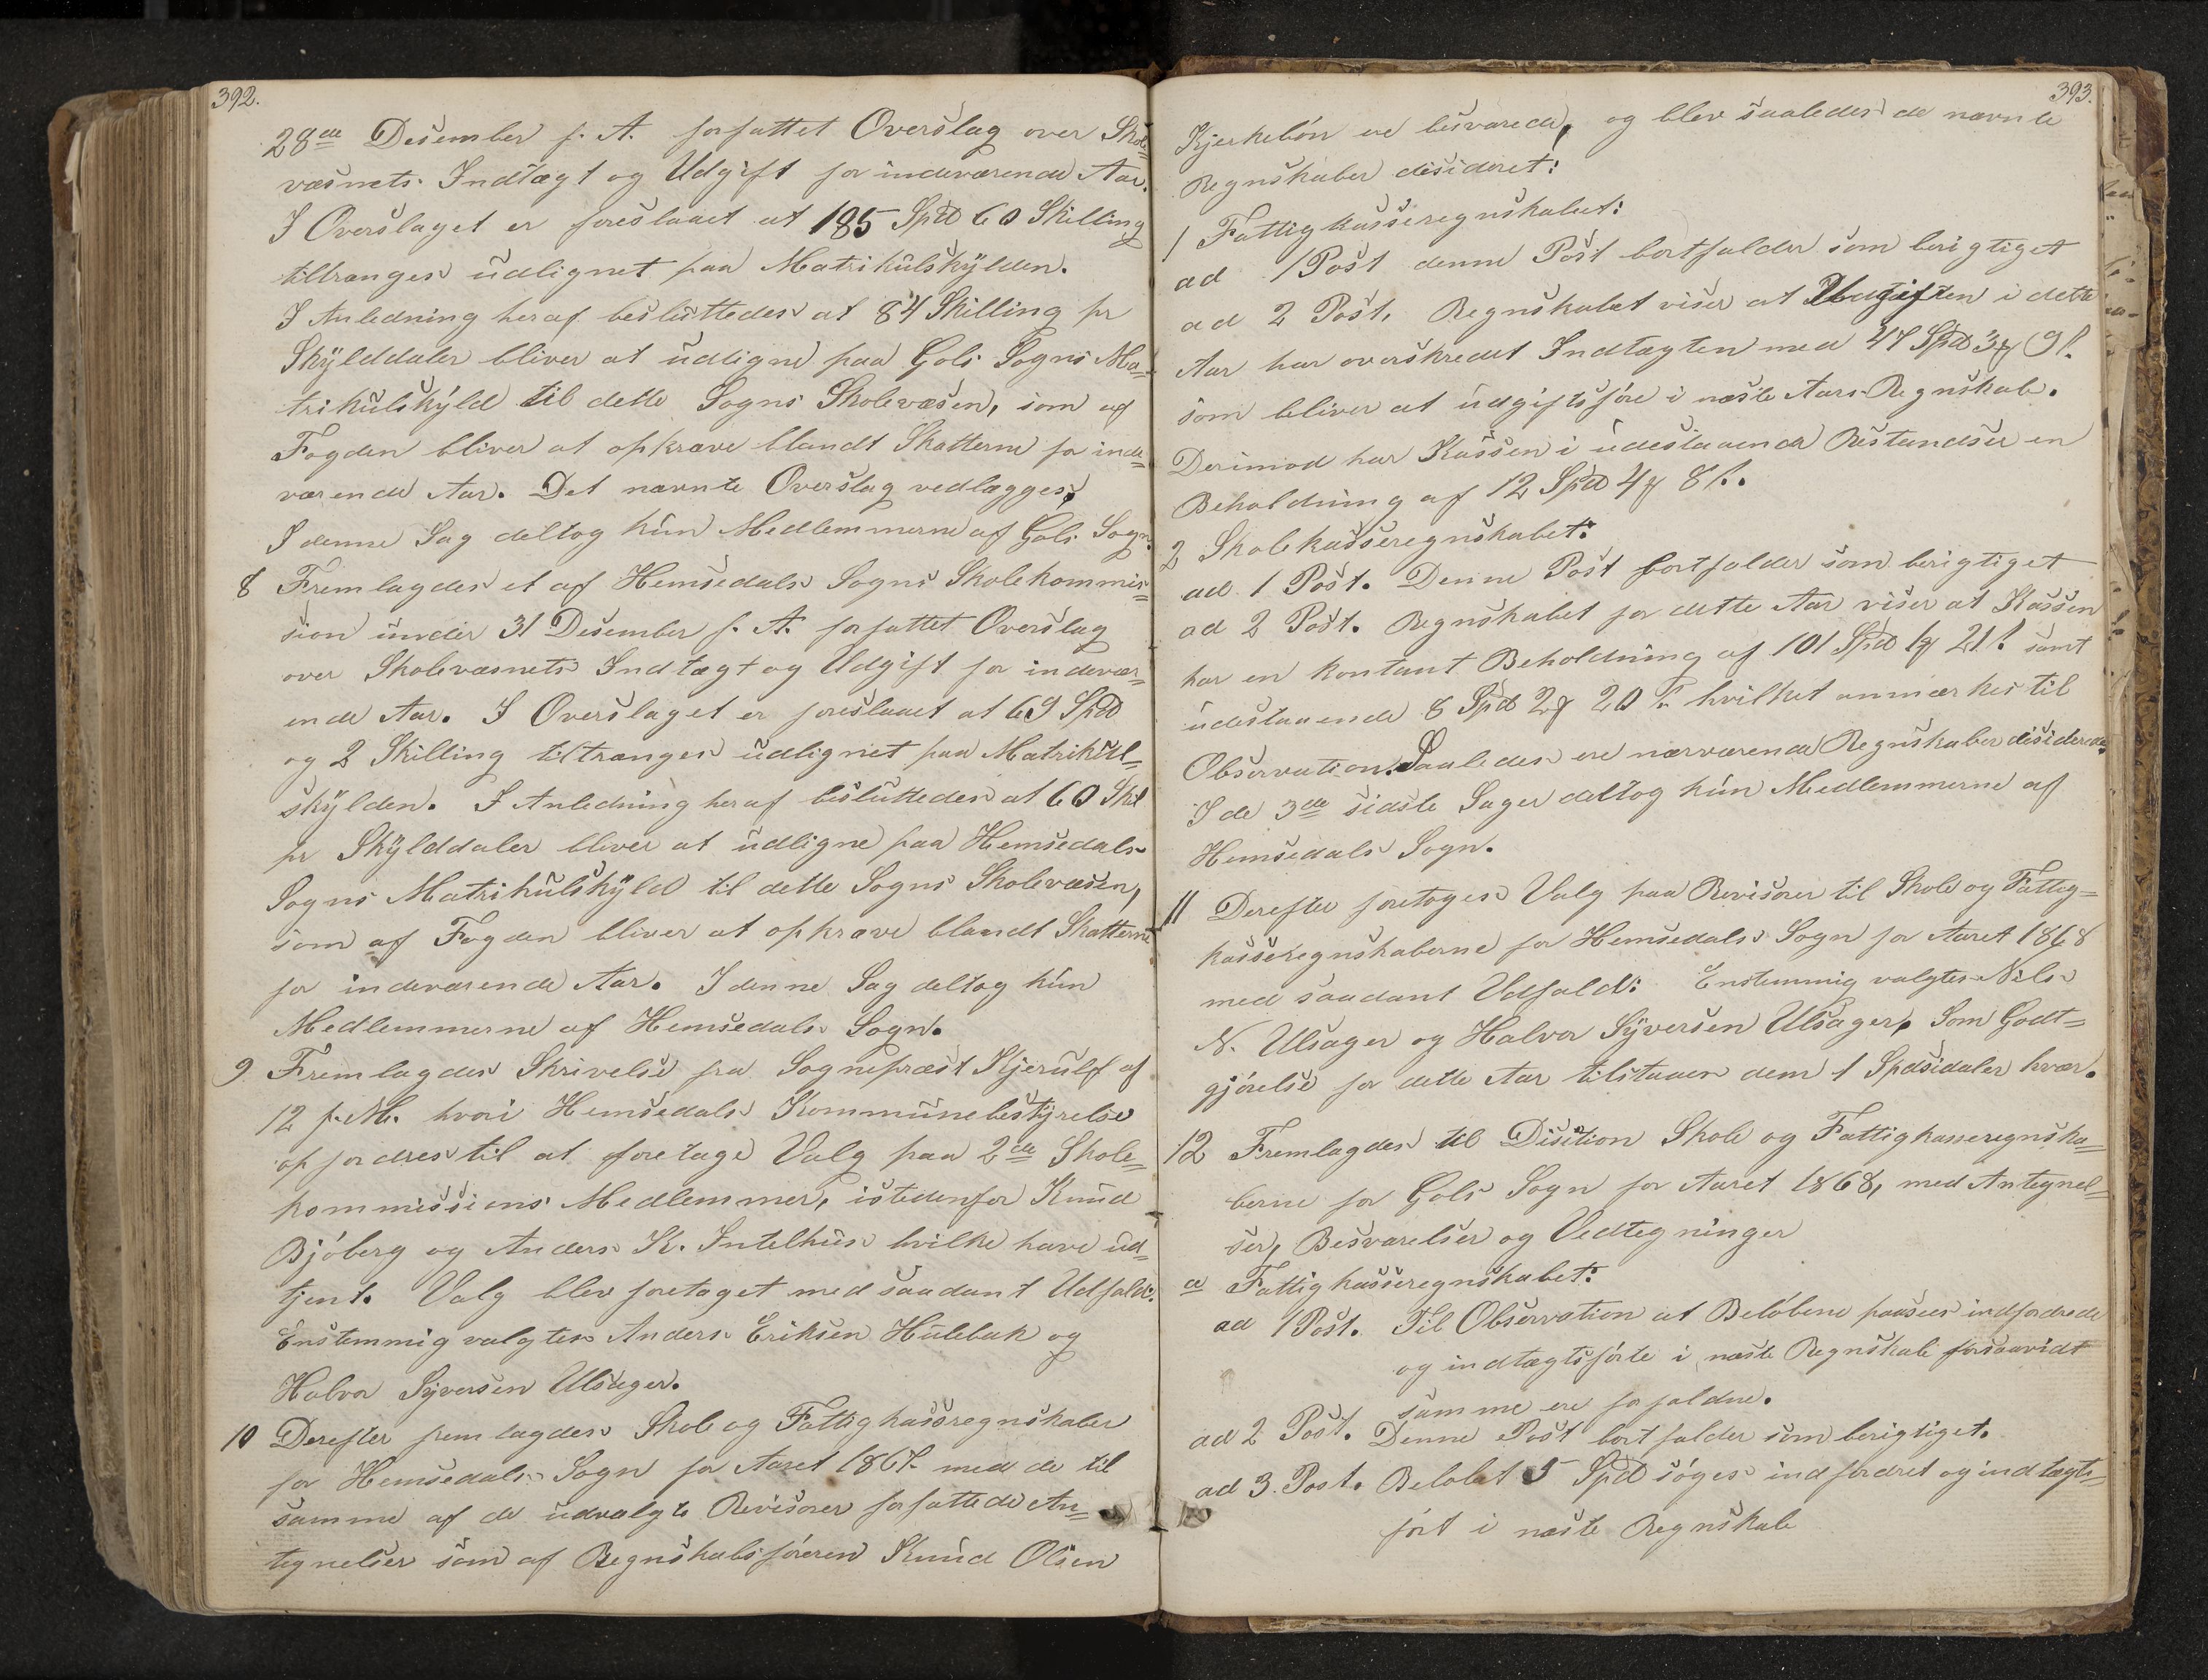 392.
28de Desember f. A. forfattet Overslag over Skole=
væsnets Indtægt og Udgift for indeværende Aar.
I Overslaget er foreslaaet at 185 Spd 60 Skilling
tiltrænges udlignet paa Matrikulskylden.
I Anledning heraf besluttedes at 84 Skilling pr
Skylddaler bliver at udligne paa Gols Sogns Ma=
trikulskyld til dette Sogns Skolevæsen, som af
Fogden bliver at opkræve blandt Skatterne for inde=
værende Aar. Det nævnte Overslag vedlægges,
I denne Sag deltog kun Medlemmerne af Gols Sogn.
8 Fremlagdes et af Hemsedals Sogns Skolekommis=
sion under 31 Desember f. A. forfattet Overslag
over Skolevæsnets Indtægt og Udgift for indevær=
ende Aar. I Overslaget er foreslaaet at 69 Spd
og 2 Skilling tiltrænges udlignet paa Matrikul=
skylden. I Anledning heraf besluttedes at 60 Skil
pr Skylddaler bliver at udligne paa Hemsedals
Sogns Matrikulskyld til dette Sogns Skolevæsen,
som af Fogden bliver at opkræve blandt Skatterne
for indeværende Aar. I denne Sag deltog kun
Medlemmerne af Hemsedals Sogn.
9. Fremlagdes Skrivelse fra Sognepræst Kjerulf af
12 f. M. hvori Hemsedals Kommunebestyrelse
opfordres til at foretage Valg paa 2de Skole=
kommissions Medlemmer, istedenfor Knud
Bjøberg og Anders K. Intelhus hvilke have ud=
tjent. Valg blev foretaget med saadant Udfald:
Enstemmig valgtes Anders Eriksen Hulebak og
Halvor Syversen Ulsager.
10 Derefter fremlagdes Skole og Fattigkasseregnskaber
for Hemsedals Sogn for Aaret 1867 med de til
samme af de udvalgte Revisorer forfattede An=
tegnelser som af Regnskabsføreren Knud Olsen
393.
Kjerkebøn ere besvarede, og blev saaledes de nævnte
Regnskaber desideret:
1 Fattigkasseregnskabet:
ad 1 Post denne Post bortfalder som berigtiget
ad 2 Post, Regnskabet viser at Udgiften i dette
Aar har overskredet Indtægten med 47 Spd 3 # 9 s.
som bliver at udgiftsføre i næste Aars Regnskab.
Derimod har Kassen i udestaaende Restandser en
Beholdning af 12 Spd 4 # 8 s.
2 Skolekasseregnskabet:
ad 1 Post. Denne Post bortfalder som berigtiget
ad 2 Post. Regnskabet for dette Aar viser at Kassen
har en kontant Beholdning af 101 Spd 1 # 21 s. samt
udestaaende 8 Spd 2 # 20 s. hvilket anmærkes til
Observation. Saaledes ere nærværende Regnskaber desiderede
I de 3de sidste Sager deltog kun Medlemmerne af
Hemsedals Sogn.
11 Derefter foretoges Valg paa Revisorer til Skole og Fattig=
kasseregnskaberne for Hemsedals Sogn for Aaret 1868
med saadant Udfald: Enstemmig valgtes Nils
N. Ulsager og Halvor Syversen Ulsager, Som Godt=
gjørelse for dette Aar tilstaaes dem 1 Spdsidaler hvær.
12 Fremlagdes til Disition Skole og Fattigkasseregnska=
berne for Gols Sogn for Aaret 1868, med Antegnel=
ser, Besvarelser og Vedtegninger
a Fattigkasseregnskabet:
ad 1 Post. Til Observation at Beløbene paasees indfordrede
og indtægtsførte i næste Regnskab forsaavidt
samme ere forfaldne.
ad 2 Post. Denne Post bortfalder som berigtiget.
ad 3. Post. Beløbet 5 Spd søges indfordret og indtægts=
ført i næste Regnskab